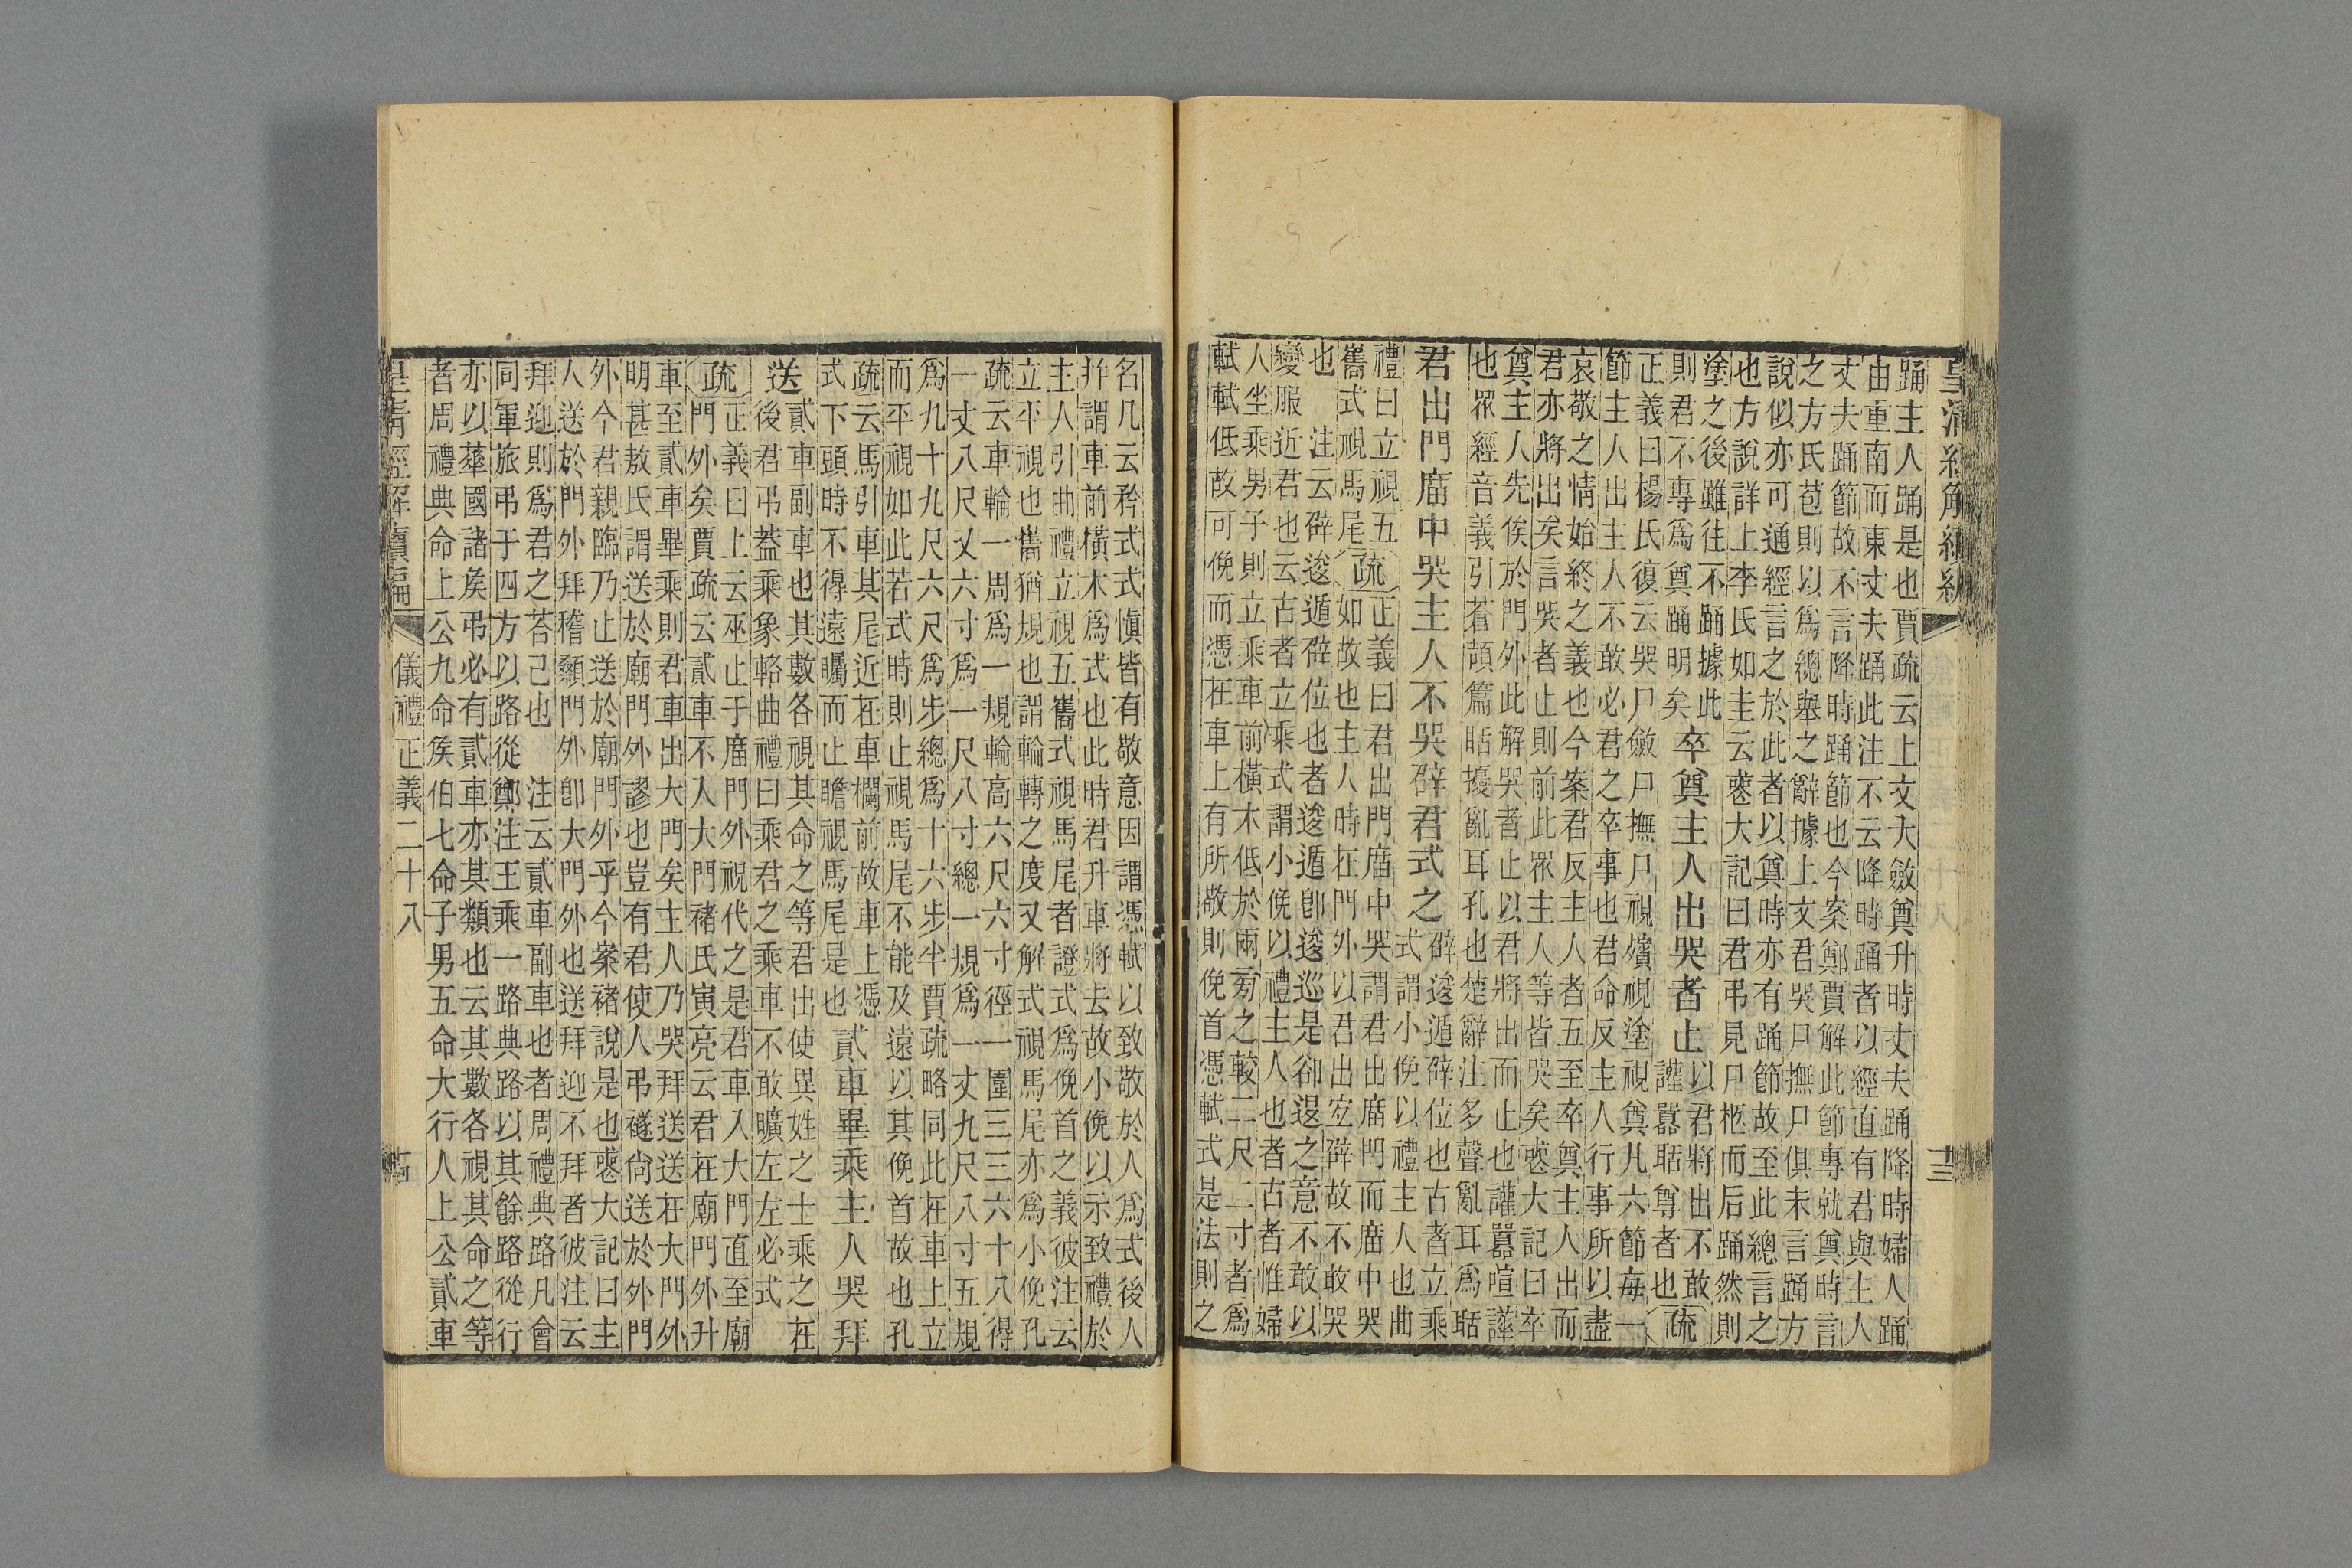 皇清經解續編 十三
踊主人踊是也賈疏云上文大斂奠升時丈夫踊降時婦人踊
由重南而東丈夫踊此注不云降時踊者以經直有君與主人
丈夫踊節故不言降時踊節也今案鄭賈解此節專就奠時言
之方氏苞則以爲總舉之辭據上文君哭尸撫尸俱未言踊方
說似亦可通經言之於此者以奠時亦有踊節故至此總言之
也方說詳上李氏如圭云喪大記曰君弔見尸柩而后踊然則
塗之後雖往不踊據此
則君不專爲奠踊明矣
卒奠主人出哭者止
以君將出不敢
讙囂聒尊者也
疏
正義曰楊氏復云哭尸斂尸撫尸視殯視塗視奠凡六節每一
節主人出主人不敢必君之卒事也君命反主人行事所以盡
哀敬之情始終之義也今案君反主人者五至卒奠主人出而
君亦將出矣言哭者止則前此眾主人等皆哭矣喪大記曰卒
奠主人先俟於門外此解哭者止以君將出而止也讙囂喧譁
也眾經音義引蒼頡篇聒擾亂耳孔也楚辭注多聲亂耳爲聒
君出門廟中哭主人不哭辟君式之
辟逡遁辟位也古者立乘
式謂小俛以禮主人也曲
禮曰立視五
巂式視馬尾
疏
正義曰君出門廟中哭謂君出廟門而廟中哭
如故也主人時在門外以君出宜辟故不敢哭
也 注云辟逡遁辟位也者逡遁卽逡巡是卻退之意不敢以
變服近君也云古者立乘式謂小俛以禮主人也者古者惟婦
人坐乘男子則立乘車前橫木低於兩旁之較二尺二寸者爲
軾軾低故可俛而憑在車上有所敬則俛首憑軾式是法則之
名凡云矜式式愼皆有敬意因謂憑軾以致敬於人爲式後人
幷謂車前橫木爲式也此時君升車將去故小俛以示致禮於
主人引曲禮立視五巂式視馬尾者證式爲俛首之義彼注云
立平視也巂猶規也謂輪轉之度又解式視馬尾亦爲小俛孔
疏云車輪一周爲一規輪高六尺六寸徑一圍三三六十八得
一丈八尺又六寸爲一尺八寸總一規爲一丈九尺八寸五規
爲九十九尺六尺爲步總爲十六步半賈疏略同此在車上立
而平視如此若式時則止視馬尾不能及遠以其俛首故也孔
疏云馬引車其尾近在車欄前故車上憑
式下頭時不得遠矚而止瞻視馬尾是也
貳車畢乘主人哭拜
送
貳車副車也其數各視其命之等君出使異姓之士乘之在
後君弔葢乘象輅曲禮曰乘君之乘車不敢曠左左必式
疏
正義曰上云巫止于廟門外祝代之是君車入大門直至廟
門外矣賈疏云貳車不入大門褚氏寅亮云君在廟門外升
車至貳車畢乘則君車出大門矣主人乃哭拜送送在大門外
明甚敖氏謂送於廟門外謬也豈有君使人弔襚尙送於外門
外今君親臨乃止送於廟門外乎今案褚說是也喪大記曰主
人送於門外拜稽顙門外卽大門外也送拜迎不拜者彼注云
拜迎則爲君之荅己也 注云貳車副車也者周禮典路凡會
同軍旅弔于四方以路從鄭注王乘一路典路以其餘路從行
亦以華國諸矦弔必有貳車亦其類也云其數各視其命之等
者周禮典命上公九命矦伯七命子男五命大行人上公貳車
皇清經解續編 儀禮正義二十八 十四